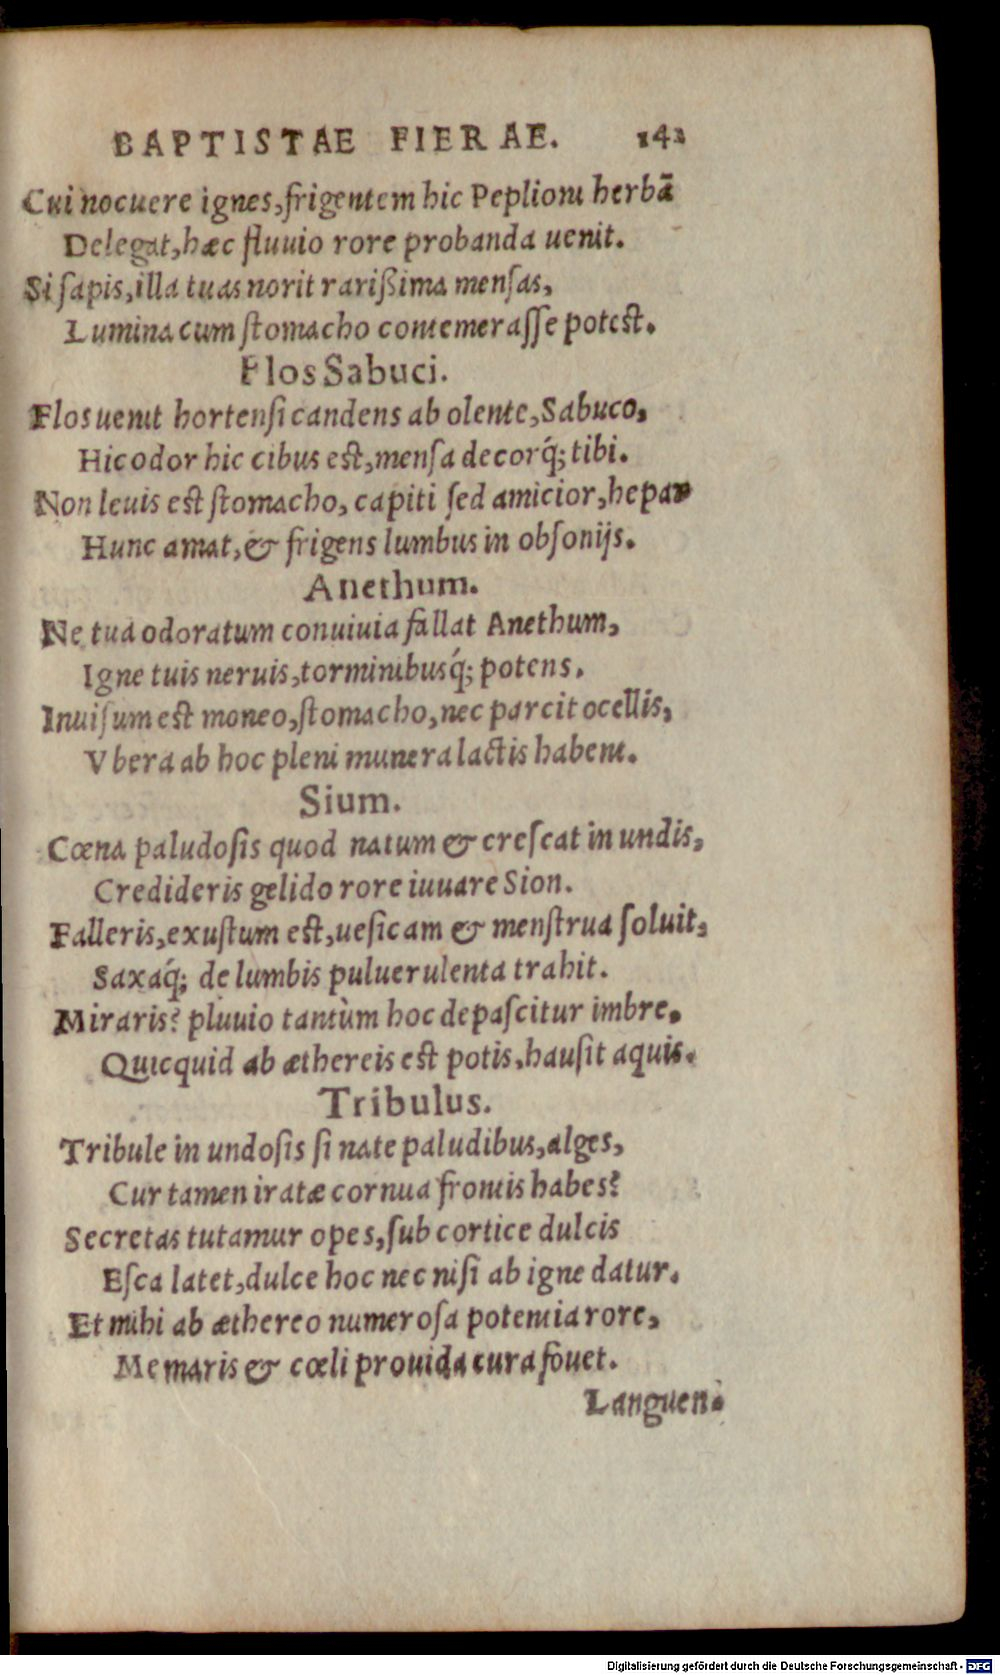 BAPTISTAE FIERAE. 141
Cui nocuere ignes, frigentem hic Peplioni herbā
Delegat, hæc fluuio rore probanda uenit.
Si ſapis, illa tuas norit rarißima menſas,
Lumina cum ſtomacho contemeraſſe poteſt.
Flos Sabuci.
Flos uenit hortenſi candens ab olente, Sabuco,
Hic odor hic cibus eſt, menſa decorq́; tibi.
Non leuis eſt ſtomacho, capiti ſed amicior, hepar
Hunc amat, & frigens lumbus in obſonijs.
Anethum.
Ne tua odoratum conuiuia fallat Anethum,
Igne tuis neruis, torminibusq́; potens.
Inuiſum eſt moneo, ſtomacho, nec parcit ocellis,
Vbera ab hoc pleni munera lactis habent.
Sium.
Cœna paludoſis quod natum & creſcat in undis,
Credideris gelido rore iuuare Sion.
Falleris, exuſtum eſt, ueſicam & menſtrua ſoluit,
Saxaq́; de lumbis puluerulenta trahit.
Miraris? pluuio tantùm hoc depaſcitur imbre.
Quicquid ab æthereis eſt potis, hauſit aquis.
Tribulus.
Tribule in undoſis ſi nate paludibus, alges,
Cur tamen iratæ cornua frontis habes?
Secretas tutamur opes, ſub cortice dulcis
Eſca latet, dulce hoc nec niſi ab igne datur.
Et mihi ab æthereo numeroſa potentia rore,
Me maris & cœli prouida cura fouet.
Languen-
Digitalisierung gefördert durch die Deutsche Forschungsgemeinschaft - DFG